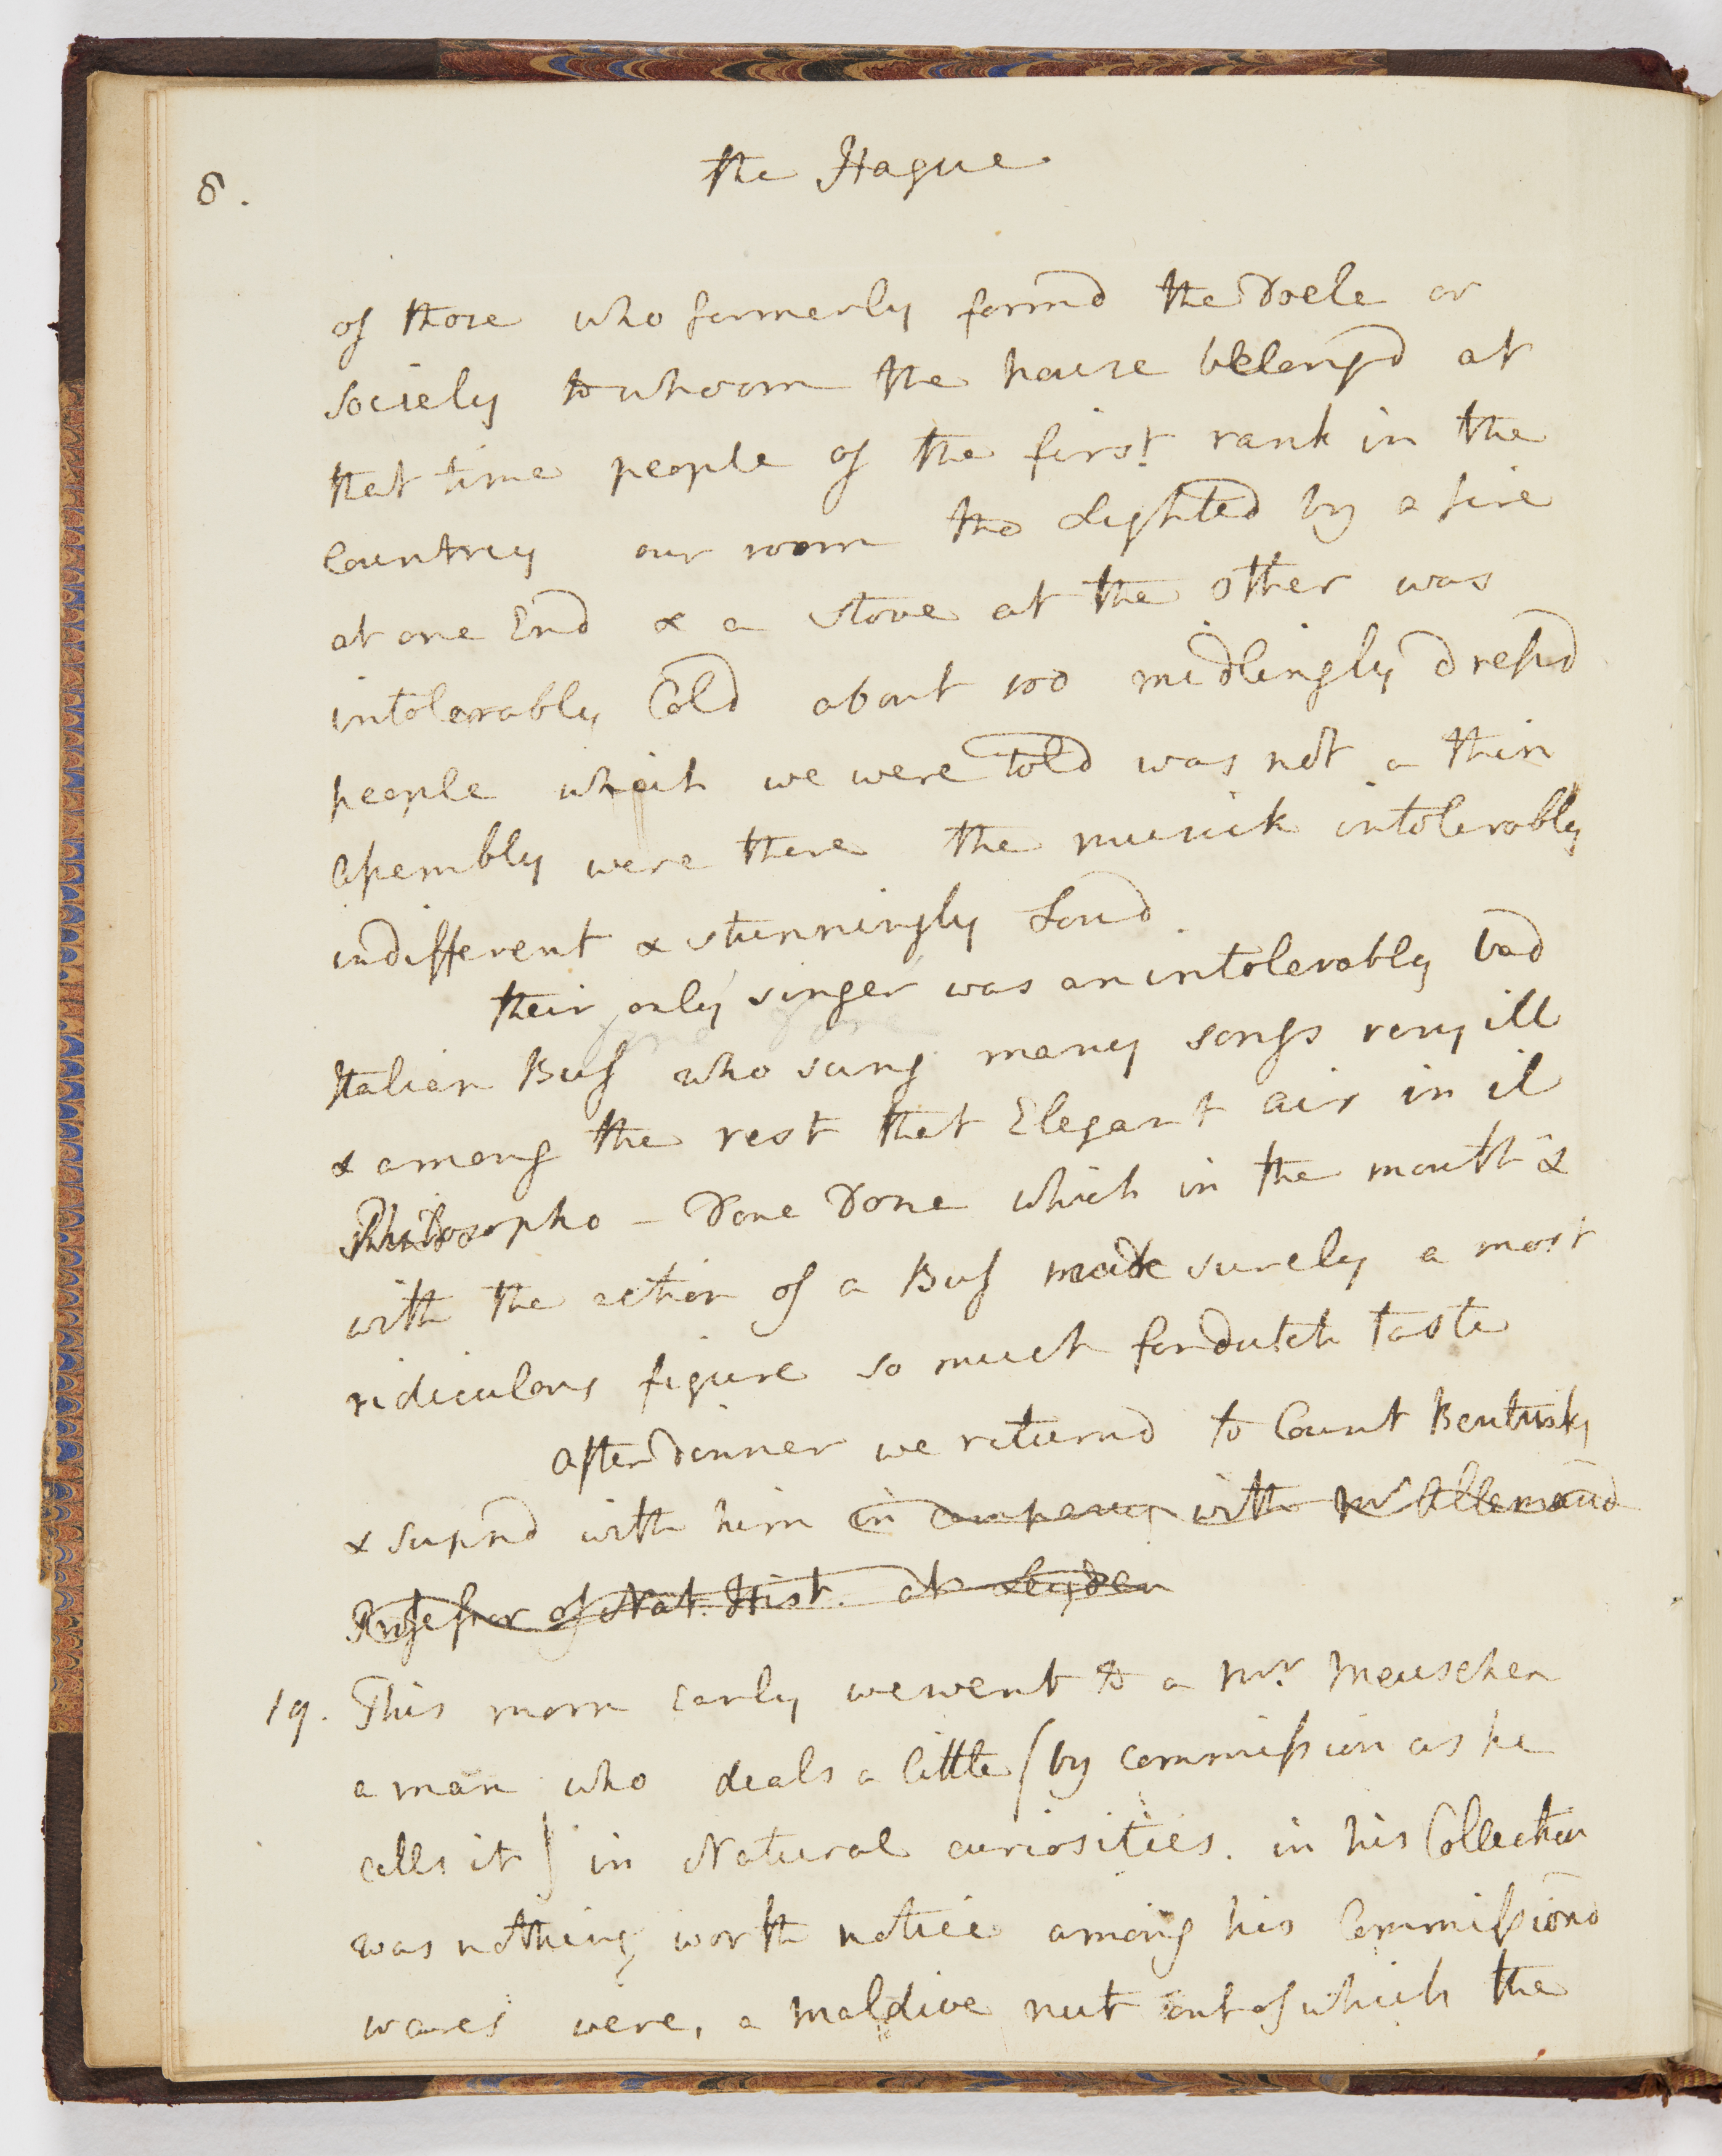 8.
the Hague
of those who formerly formd the Doele or
society to whoom the house belongd at
that time people of the first rank in the
Countrey our room tho Lighted by a fire
at one End & a stove at the other was
intolerably Cold about 100 midlingly dressd
people which we were told was not a thin
assembly were there the musick intolerably
indifferent & stunningly Loud.
their only singer was an intolerably bad
Italian Buf who sung many songs very ill
& among the rest that Elegant air in il
Philosopho - Done Done which in the mouth &
with the action of a Buf made surely a most
ridiculous figure so much for dutch taste
after dinner we returnd to Count Bentinks
& supnd with him in company with Mr Allemand
Professor of Nat. Hist. at Leyden
19. This morn early we went to a Mr. Meuschen
a man who deals a little (by commission as he
calls it) in Natural curiosities. in his Collection
was nothing worth notice among his Commissiond
wares were, a Maldive nut out of which the